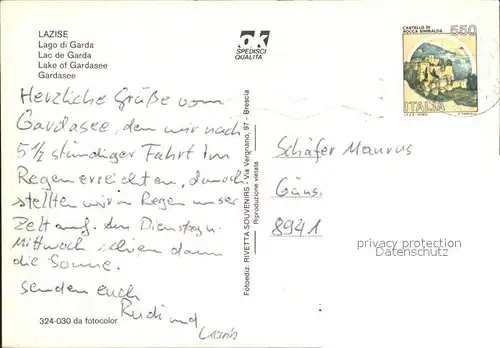 LAZISE
Lago di Garda
Lac de Garda
Lake of Gardasee
Gardasee
ok
SPEDISCI
QUALITA
CASTELLO DI
ROCCA SINIBALDA
550
ITALIA
Herzliche Grüße vom
Gardasee, den wir nach
5 1/2 stündiger Fahrt im
Regen erreichten, danach
stellten wir im Regen unser
Zelt auf. Am Dienstag u.
Mittwoch schien dann
die Sonne.
senden euch
Rudi und
324-030 da fotocolor
Fotoediz. RIVETTA SOUVENIRS - Via Vergnano, 97 - Brescia
Riproduzione vietata
Schäfer Maurus
Gäns
8941
privacy protection
Datenschutz